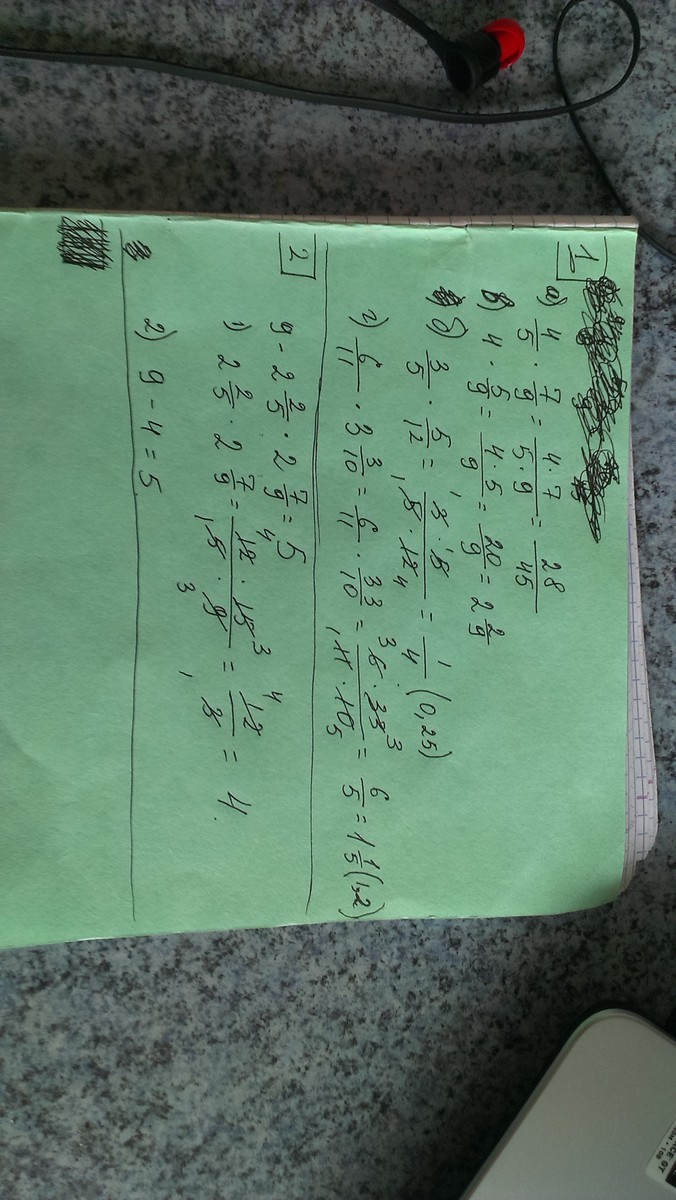 1
а) 4/5 · 7/9 = 4·7/5·9 = 28/45
в) 4 · 5/9 = 4·5/9 = 20/9 = 2 2/9
б) 3/5 · 5/12 = 3·5/5·12 1 1 4 = 1/4 (0,25)
г) 6/11 · 3 3/10 = 6/11 · 33/10 = 6·33/11·10 3 3 1 5 = 6/5 = 1 1/5 (1,2)
2
9 - 2 2/5 · 2 7/9 = 5
1) 2 2/5 · 2 7/9 = 12·15/5·9 4 3 1 3 = 12/3 4 1 = 4.
2) 9 - 4 = 5